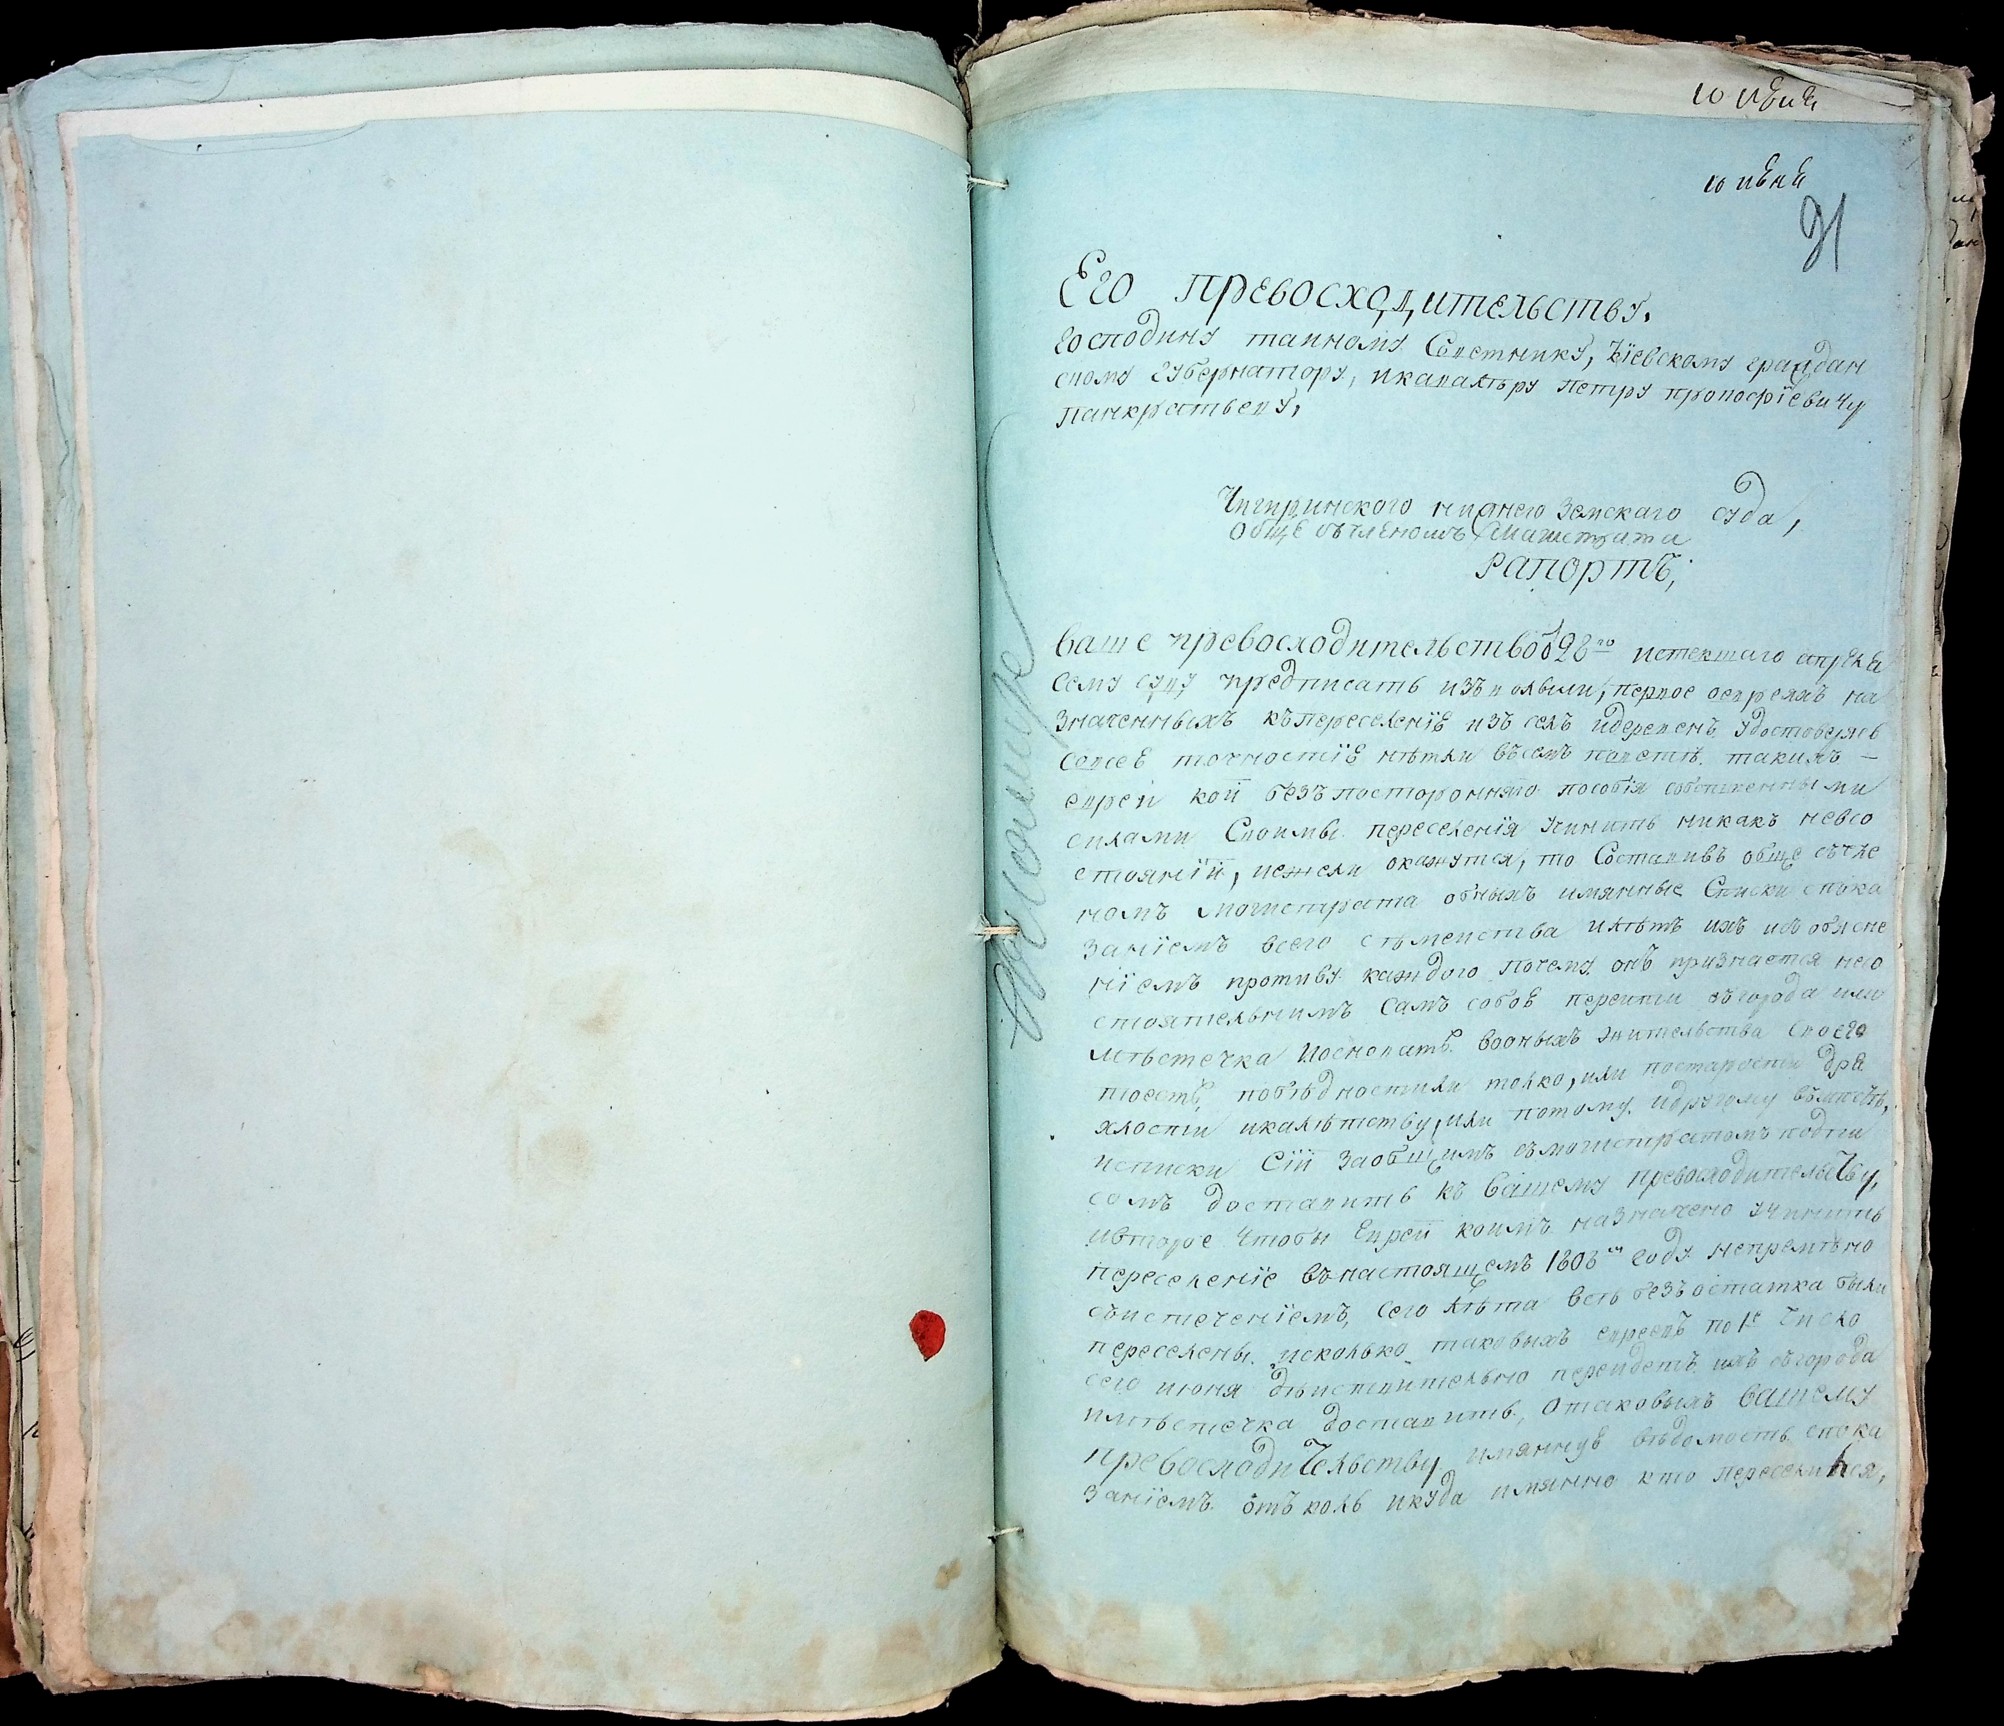 10 июня
10 июня
31
Его превосходительству.
Господину таиному Советнику, Кіевскому граждан
скому губернатору, икавалѣру петру прокофїевичу
панкратьеву,
Чигиринского нижнего Земскаго суда,
Обще съчленомъ Магистрата
Рапортъ,
ваше превосходительство 28го истекшаго апреля
сему суду предписать изъволили, первое оевреяхъ на
значенныхъ къпереселенїю изъ селъ идеревень удостоверясь
совсею точностїю нѣтли въсемъ поветѣ такихъ —
евреи кои безъ посторонняго пособїя собственными
силами Своимы переселенїя учинить никакъ невсо
стоянїи, иежели окажутся, то Составивъ обще съчле
номъ Магистрата оныхъ имянные Списки спока
занїемъ всего сѣмеиства илѣтъ ихъ исъ обясне
нїемъ противу каждого почему онъ признается несо
стоятельнимъ Самъ собою переити въгорода или
мѣстечка Иосновать вооныхъ жительства Своего
побѣдностили толко, или постарости дря
хлости икалѣчеству, или потому идругому въместѣ,
исписки Сїи заобщимъ съмагистратомъ подпи
сомъ доставить къ Вашему превосходительству,
ивторое Чтобы Евреи коимъ назначено учинить
переселенїе въ настоящемъ 1808м году непремѣнно
съистеченїемъ сего лѣта всѣ безъ остатка были
переселены исколько таковыхъ евреевъ по 1е Число
сего июня дѣиствительно переидетъ ихъ въгорода
имѣстечка доставить отаковыхъ вашему
превосходительству имянную вѣдомость спока
занїемъ отъ коль икуда имянно кто переселился,